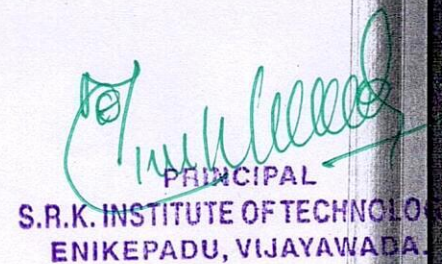 PRINCIPAL
S.R.K. INSTITUTE OF TECHNOLO
ENIKEPADU, VIJAYAWADA.